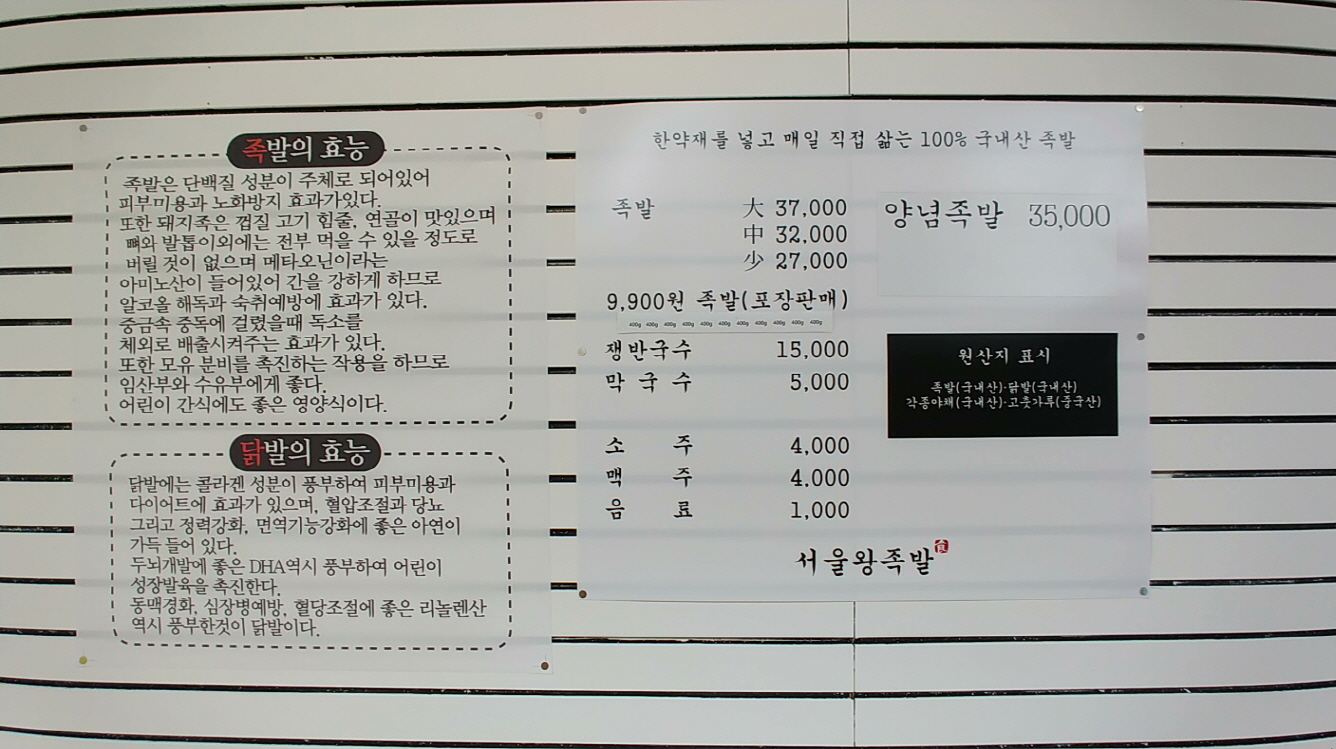 족발의 효능
족발은 단백질 성분이 주체로 되어있어
피부미용과 노화방지 효과가있다.
또한 돼지족은 껍질 고기 힘줄, 연골이 맛있으며
뼈와 발톱이외에는 전부 먹을 수 있을 정도로
버릴 것이 없으며 메타오닌이라는
아미노산이 들어있어 간을 강하게 하므로
알코올 해독과 숙취예방에 효과가 있다.
중금속 중독에 걸렸을때 독소를
체외로 배출시켜주는 효과가 있다.
또한 모유 분비를 촉진하는 작용을 하므로
임산부와 수유부에게 좋다.
어린이 간식에도 좋은 영양식이다.
닭발의 효능
닭발에는 콜라겐 성분이 풍부하여 피부미용과
다이어트에 효과가 있으며, 혈압조절과 당뇨
그리고 정력강화, 면역기능강화에 좋은 아연이
가득 들어 있다.
두뇌개발에 좋은 DHA역시 풍부하여 어린이
성장발육을 촉진한다.
동맥경화, 심장병예방, 혈당조절에 좋은 리놀렌산
역시 풍부한것이 닭발이다.
한약재를 넣고 매일 직접 삶는 100% 국내산 족발
족발 大 37,000
中 32,000
少 27,000
9,900원 족발(포장판매)
400g 400g 400g 400g 400g 400g 400g 400g 400g 400g 400g
쟁반국수 15,000
막국수 5,000
소주 4,000
맥주 4,000
음료 1,000
양념족발 35,000
원산지 표시
족발(국내산)·닭발(국내산)
각종야채(국내산)·고춧가루(중국산)
서울왕족발 食